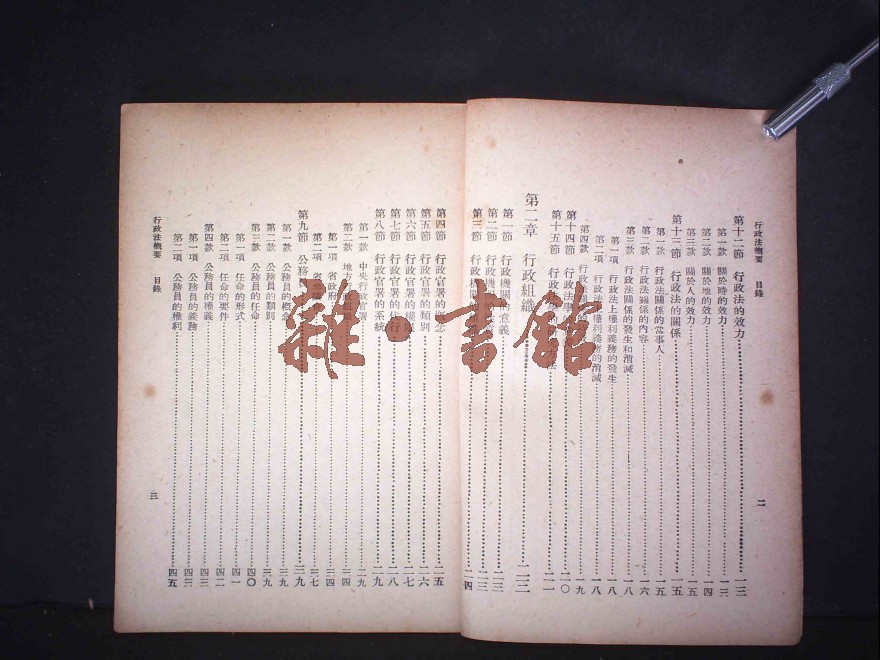 行政法概要 目錄 二
第十二節 行政法的效力 一三
第一款 關於時的效力 一三
第二款 關於地的效力 一四
第三款 關於人的效力 一五
第十三節 行政法的關係 一五
第一款 行政法關係的當事人 一五
第二款 行政法關係的內容 一六
第三款 行政法關係的發生和消滅 一八
第一項 行政法上權利義務的發生 一八
第二項 行政法上權利義務的消滅 一八
第四款 行政法 一九
第十四節 行政法學 二〇
第十五節 行政法 法 二一
第二章 行政組織 二三
第一節 行政機關的意義 二三
第二節 行政機關 二三
第三節 行政機關 二四
第四節 行政官署的概念 二五
第五節 行政官署的類別 二六
第六節 行政官署的權限 二七
第七節 行政官署的代行 二八
第八節 行政官署的系統 二九
第一款 中央行政官署 二九
第二款 地方行政官署 三四
第一項 省政府 三四
第二項 省 三七
第九節 公務員 三九
第一款 公務員的概念 三九
第二款 公務員的類別 三九
第三款 公務員的任命 四〇
第一項 任命的形式 四一
第二項 任命的要件 四二
第四款 公務員的權義 四三
第一項 公務員的義務 四三
第二項 公務員的權利 四五
行政法概要 目錄 三
雜·書館